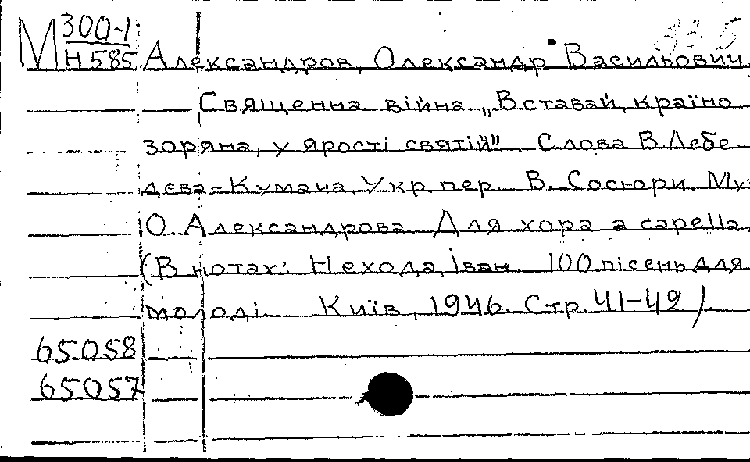 М 300-1
Н 585 Александров, Олександр Васильович
Священна війна „Вставай, країно
зоряна, у ярості святій". Слова В. Лебе-
дєва-Кумача. Укр. пер. В. Сосюри. Муз
О. Александрова. Для хора a capella.
(В нотах: Нехода, Іван. 100 пісень для
молоді. Київ, 1946. Стр. 41-49)
65.058
65.057